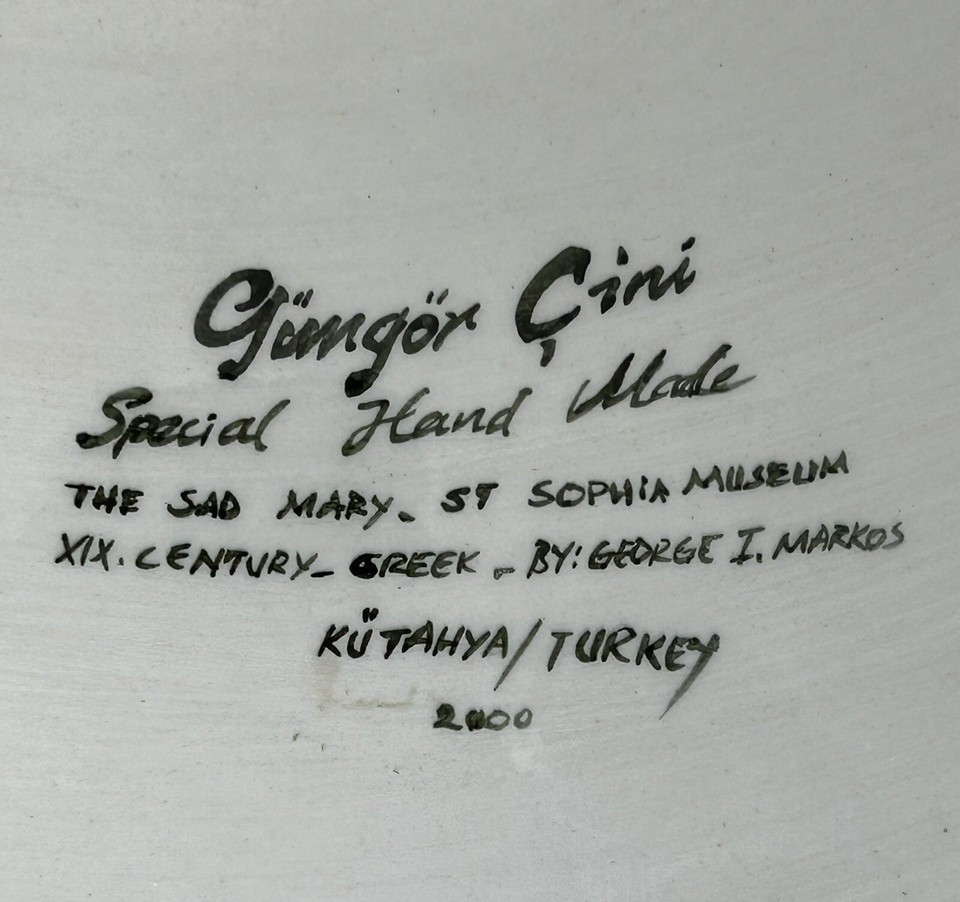 Güngör Çini
Special Hand Made
THE SAD MARY_ ST SOPHIA MUSEUM
XIX. CENTURY_ GREEK _ BY: GEORGE I. MARKOS
KÜTAHYA/TURKEY
2000